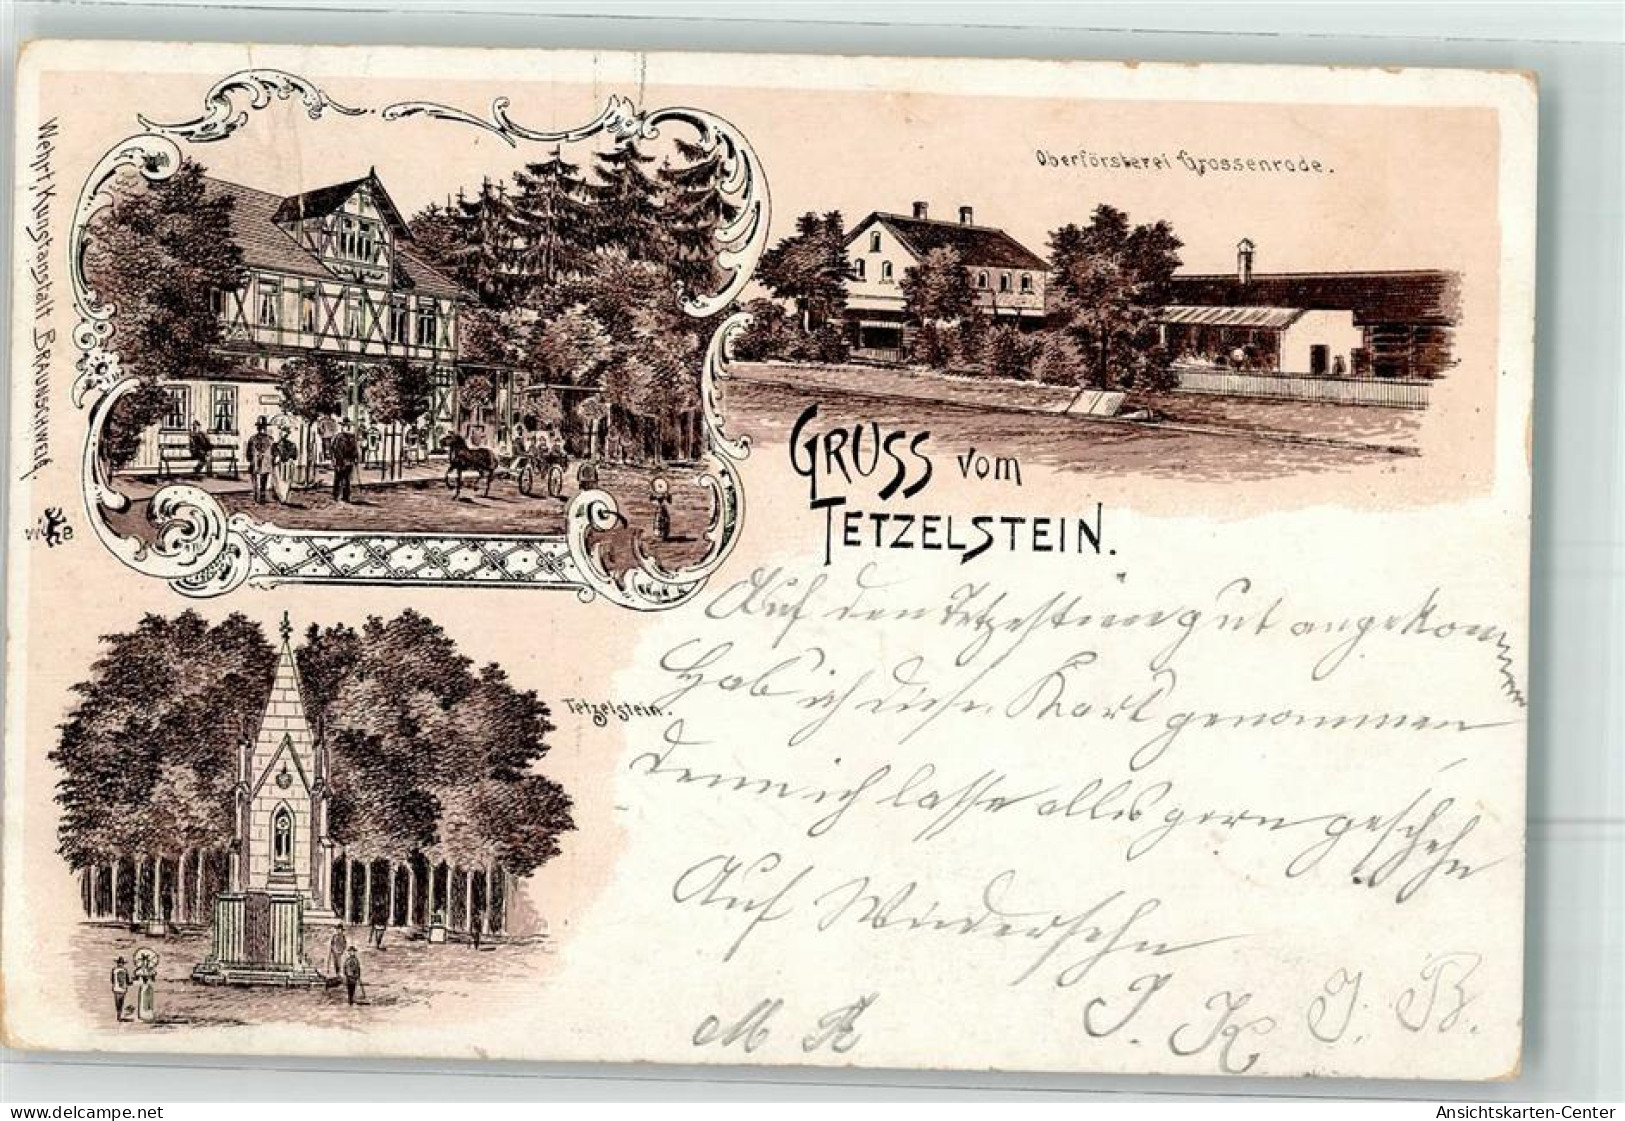 Wehrt, Kunstanstalt BRAUNSCHWEIG.
W B
Oberförsterei Grossenrode.
GRUSS vom
TETZELSTEIN.
Tetzelstein.
Auf den Tetzelstein gut angekom
Hab ich diese Kart genommen
denn ich lasse alles gern geschehn
Auf Wiedersehn
J. K. J. B.
M
delcampe.net
Ansichtskarten-Center